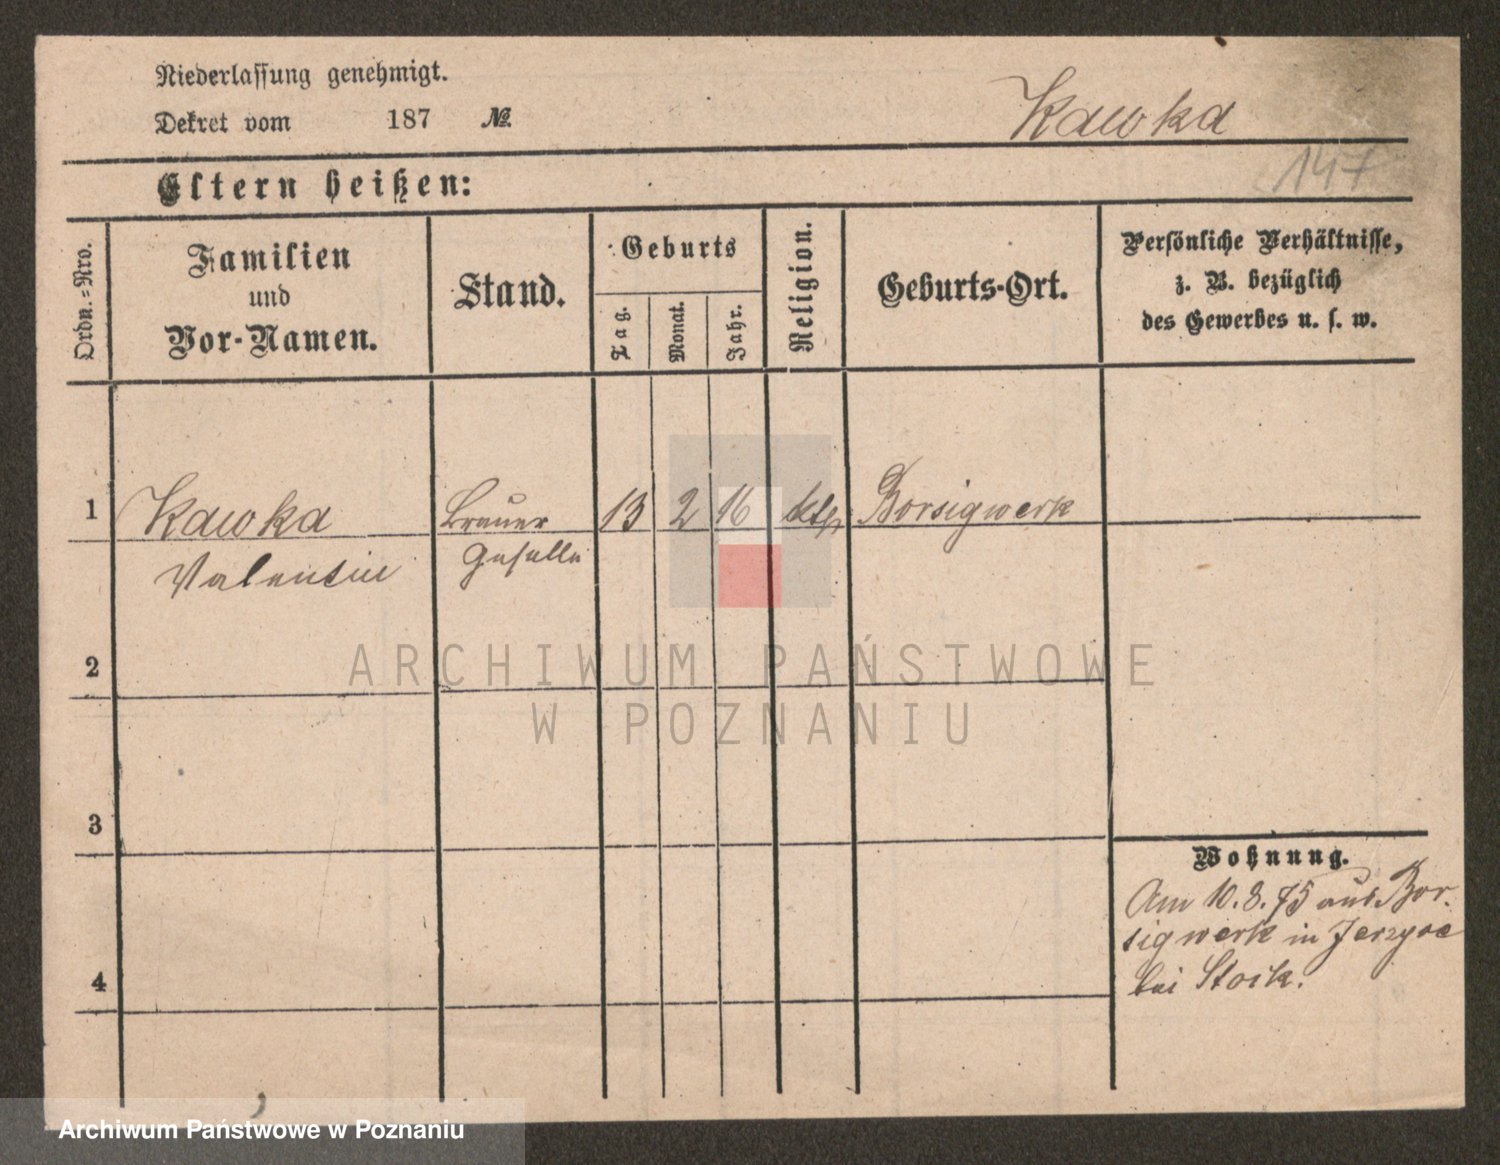 Niederlassung genehmigt.
Dekret vom 187 №.
Kawka
147
Eltern heißen:
Ordn.=Nro.
Familien
und
Vor-Namen.
Stand.
Geburts
Tag.
Monat.
Jahr.
Religion.
Geburts-Ort.
Persönliche Verhältnisse,
z. B. bezüglich
des Gewerbes u. s. w.
1 Kawka Brauer 13 2 16 kth Borsigwerk
Valentin Geselle
2
3
4
Wohnung.
Am 10.8.75 aus Bor-
sigwerk in Jerzyce
bei Stock.
ARCHIWUM PAŃSTWOWE
W POZNANIU
Archiwum Państwowe w Poznaniu